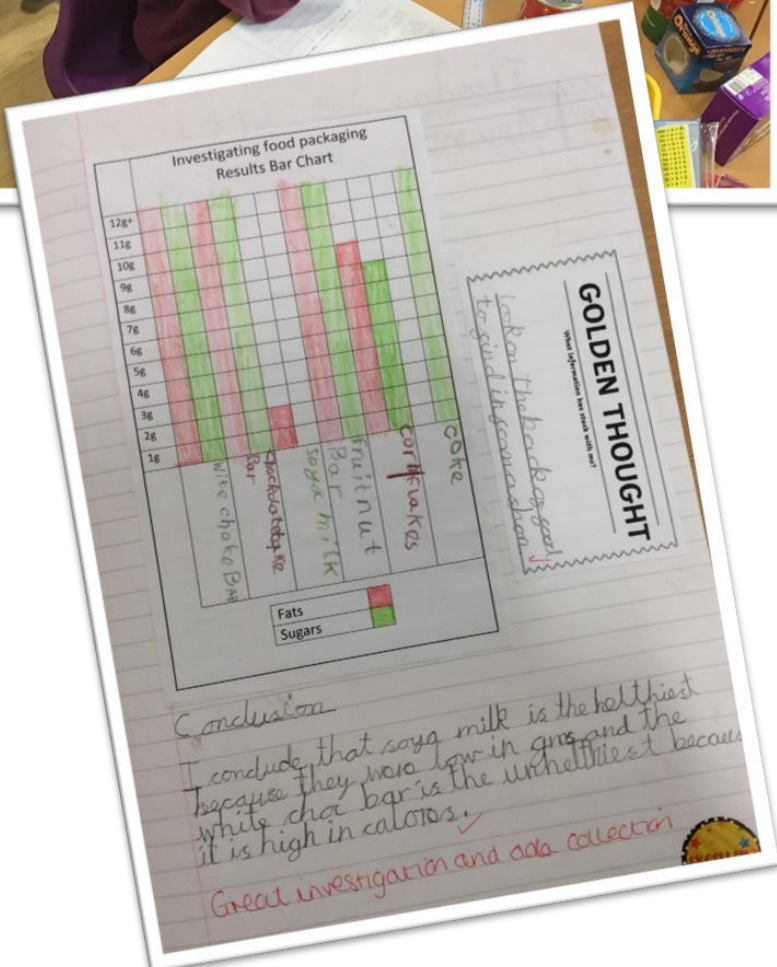 Orange
Orange
Investigating food packaging
Results Bar Chart
12g+
11g
10g
9g
8g
7g
6g
5g
4g
3g
2g
1g
Wite choke BAR
Bar
soya milk
fruitnut
Bar
cornflakes
coke
Fats
Sugars
GOLDEN THOUGHT
What information has stuck with me?
look on the back of food
to find
Conclusion
I conclude that soya milk is the helthiest
because they were low in and the
white choc bar is the unhelthiest because
it is high in
Great investigation and data collection